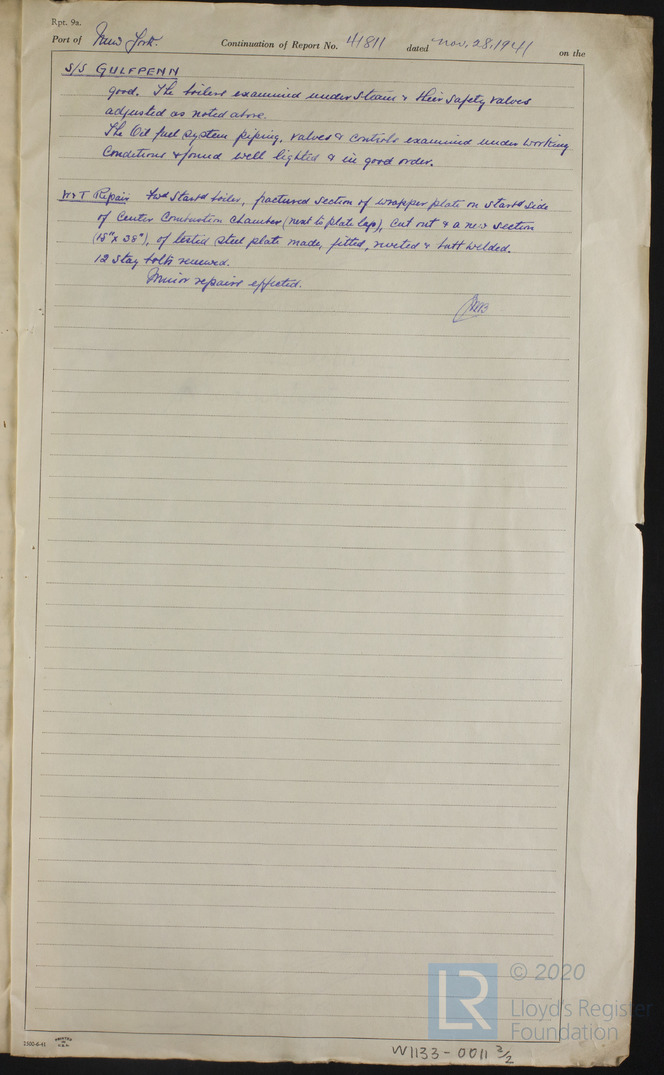 Rpt. 9a.
Port of New York. Continuation of Report No. 41811 dated Nov, 28, 1941 on the
S/S GULFPENN
good. The boilers examined under steam & their safety valves
adjusted as noted above.
The Oil fuel system piping, valves & controls examined under working
conditions & found well lighted & in good order.
W & T Repair Fwd Starbd boiler, fractured section of wrapper plate on starbd side
of Center Combustion Chamber (next to plate lap), cut out & a new section
(15" x 38"), of tested steel plate made, fitted, riveted & butt welded.
12 stay bolts renewed.
Minor repairs effected.
2500-6-41 PRINTED IN U.S.A.
W1133-0011 3/2
LR © 2020
Lloyd's Register
Foundation